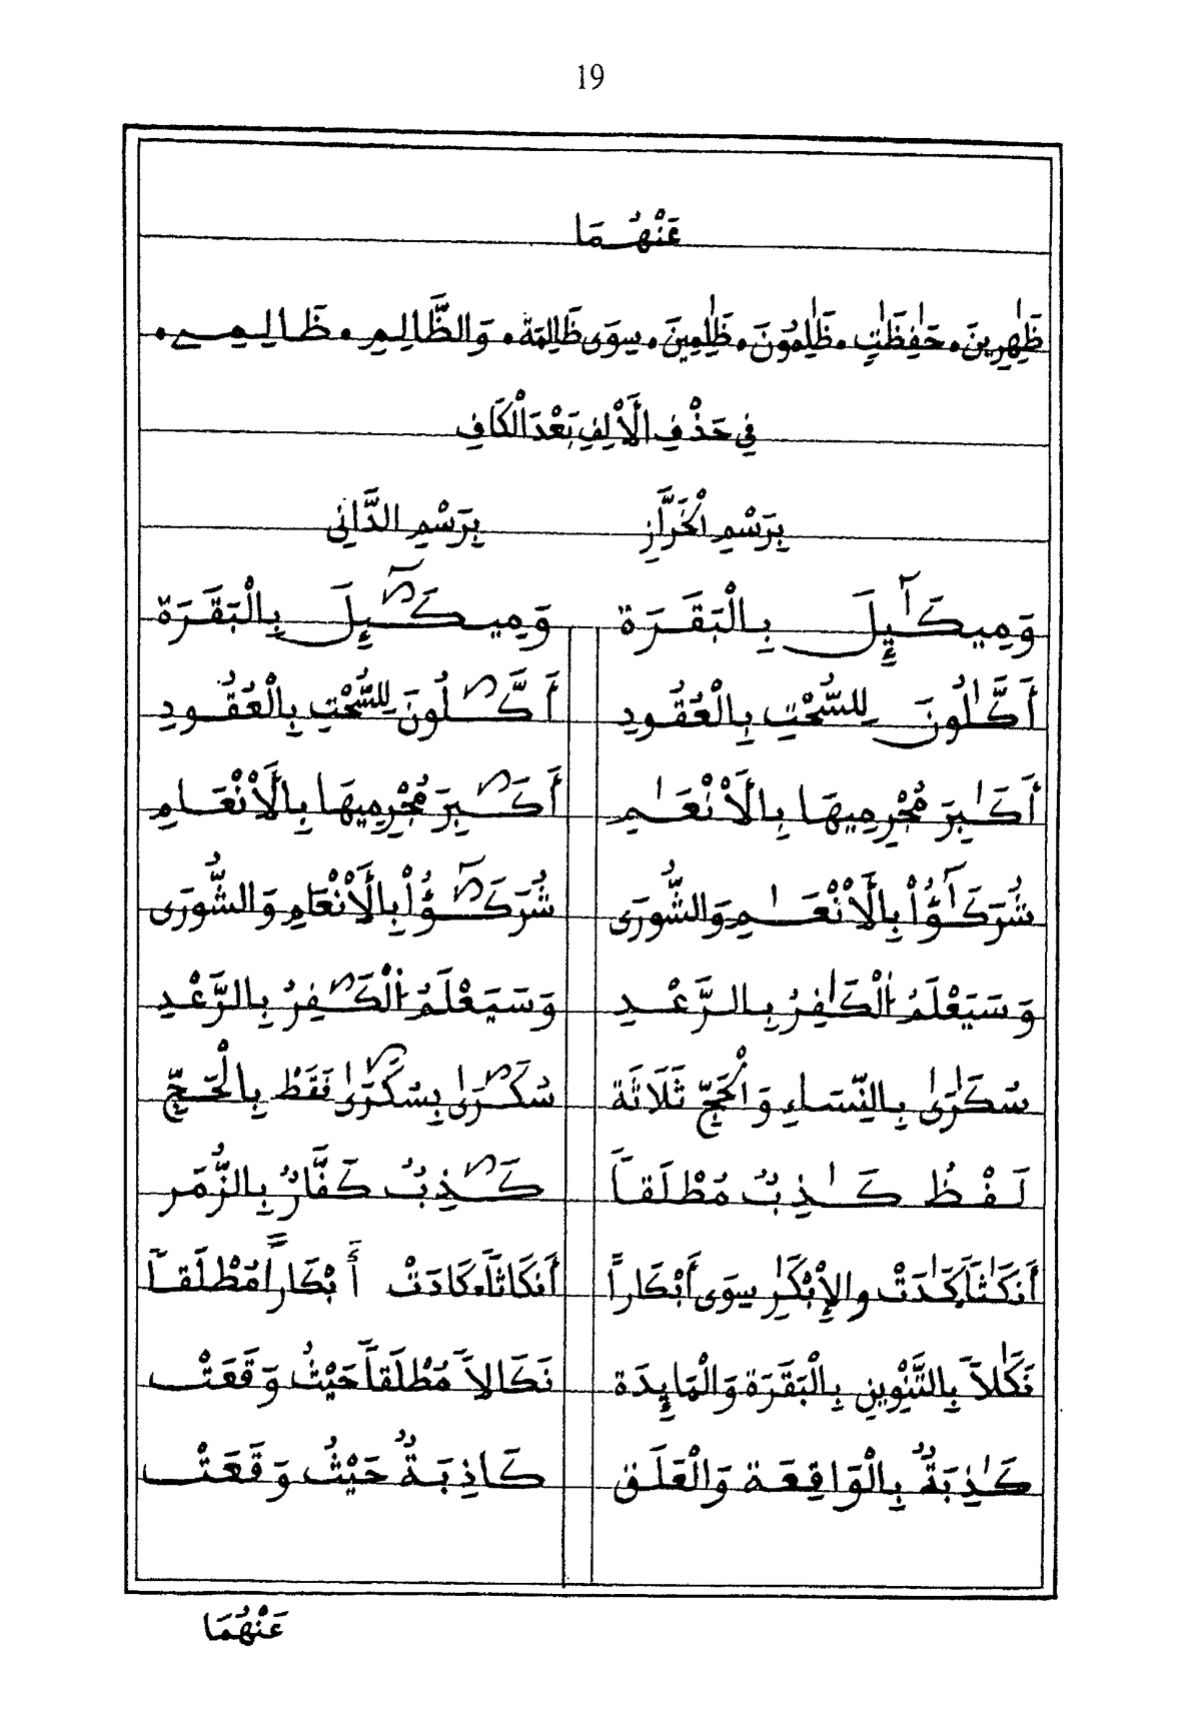 19
عَنْهُمَا
ظَٰهِرِينَ. حَٰفِظَٰتٍ. ظَٰلِمُونَ. ظَٰلِمِينَ. سِوَى ظَالِمَة. وَالظَّالِمِ. ظَالِمِے.
فِي حَذْفِ الَالِفِ بَعْدَ الْكَافِ
بِرَسْمِ الْخَرَّازِ بِرَسْمِ الدَّانِى
وَمِيكَٰٓئِلَ بِالْبَقَرَة وَمِيكَٰٓئِلَ بِالْبَقَرَة
أَكَّٰلُونَ لِلسُّحْتِ بِالْعُقُودِ أَكَّٰلُونَ لِلسُّحْتِ بِالْعُقُودِ
أَكَٰبِرَ مُجْرِمِيهَا بِالَانْعَٰمِ أَكَٰبِرَ مُجْرِمِيهَا بِالَانْعَامِ
شُرَكَٰٓؤُاْ بِالَانْعَٰمِ وَالشُّورَى شُرَكَٰٓؤُاْ بِالَانْعَامِ وَالشُّورَى
وَسَيَعْلَمُ الْكَٰفِرُ بِالرَّعْدِ وَسَيَعْلَمُ الْكَٰفِرُ بِالرَّعْدِ
سُكَٰرَىٰ بِالنِّسَاءِ وَالْحَجِّ ثَلَاثَة سُكَٰرَىٰ بِسُكَٰرَىٰ فَقَطْ بِالْحَجِّ
لَفْظُ كَٰذِبٌ مُطْلَقاً كَٰذِبٌ كَفَّارٌ بِالزُّمَر
أَنكَٰثاً. كَٰدَتْ وَالِابْكَٰرِ سِوَى أَبْكَاراً أَنكَاثاً. كَادَتْ أَبْكَاراً مُطْلَقاً
نَكَٰلاً بِالتَّنْوِينِ بِالْبَقَرَة وَالْمَائِدَة نَكَالاً مُطْلَقاً حَيْثُ وَقَعَتْ
كَٰذِبَةٌ بِالْوَاقِعَة وَالْعَلَق كَاذِبَةٌ حَيْثُ وَقَعَتْ
عَنْهُمَا